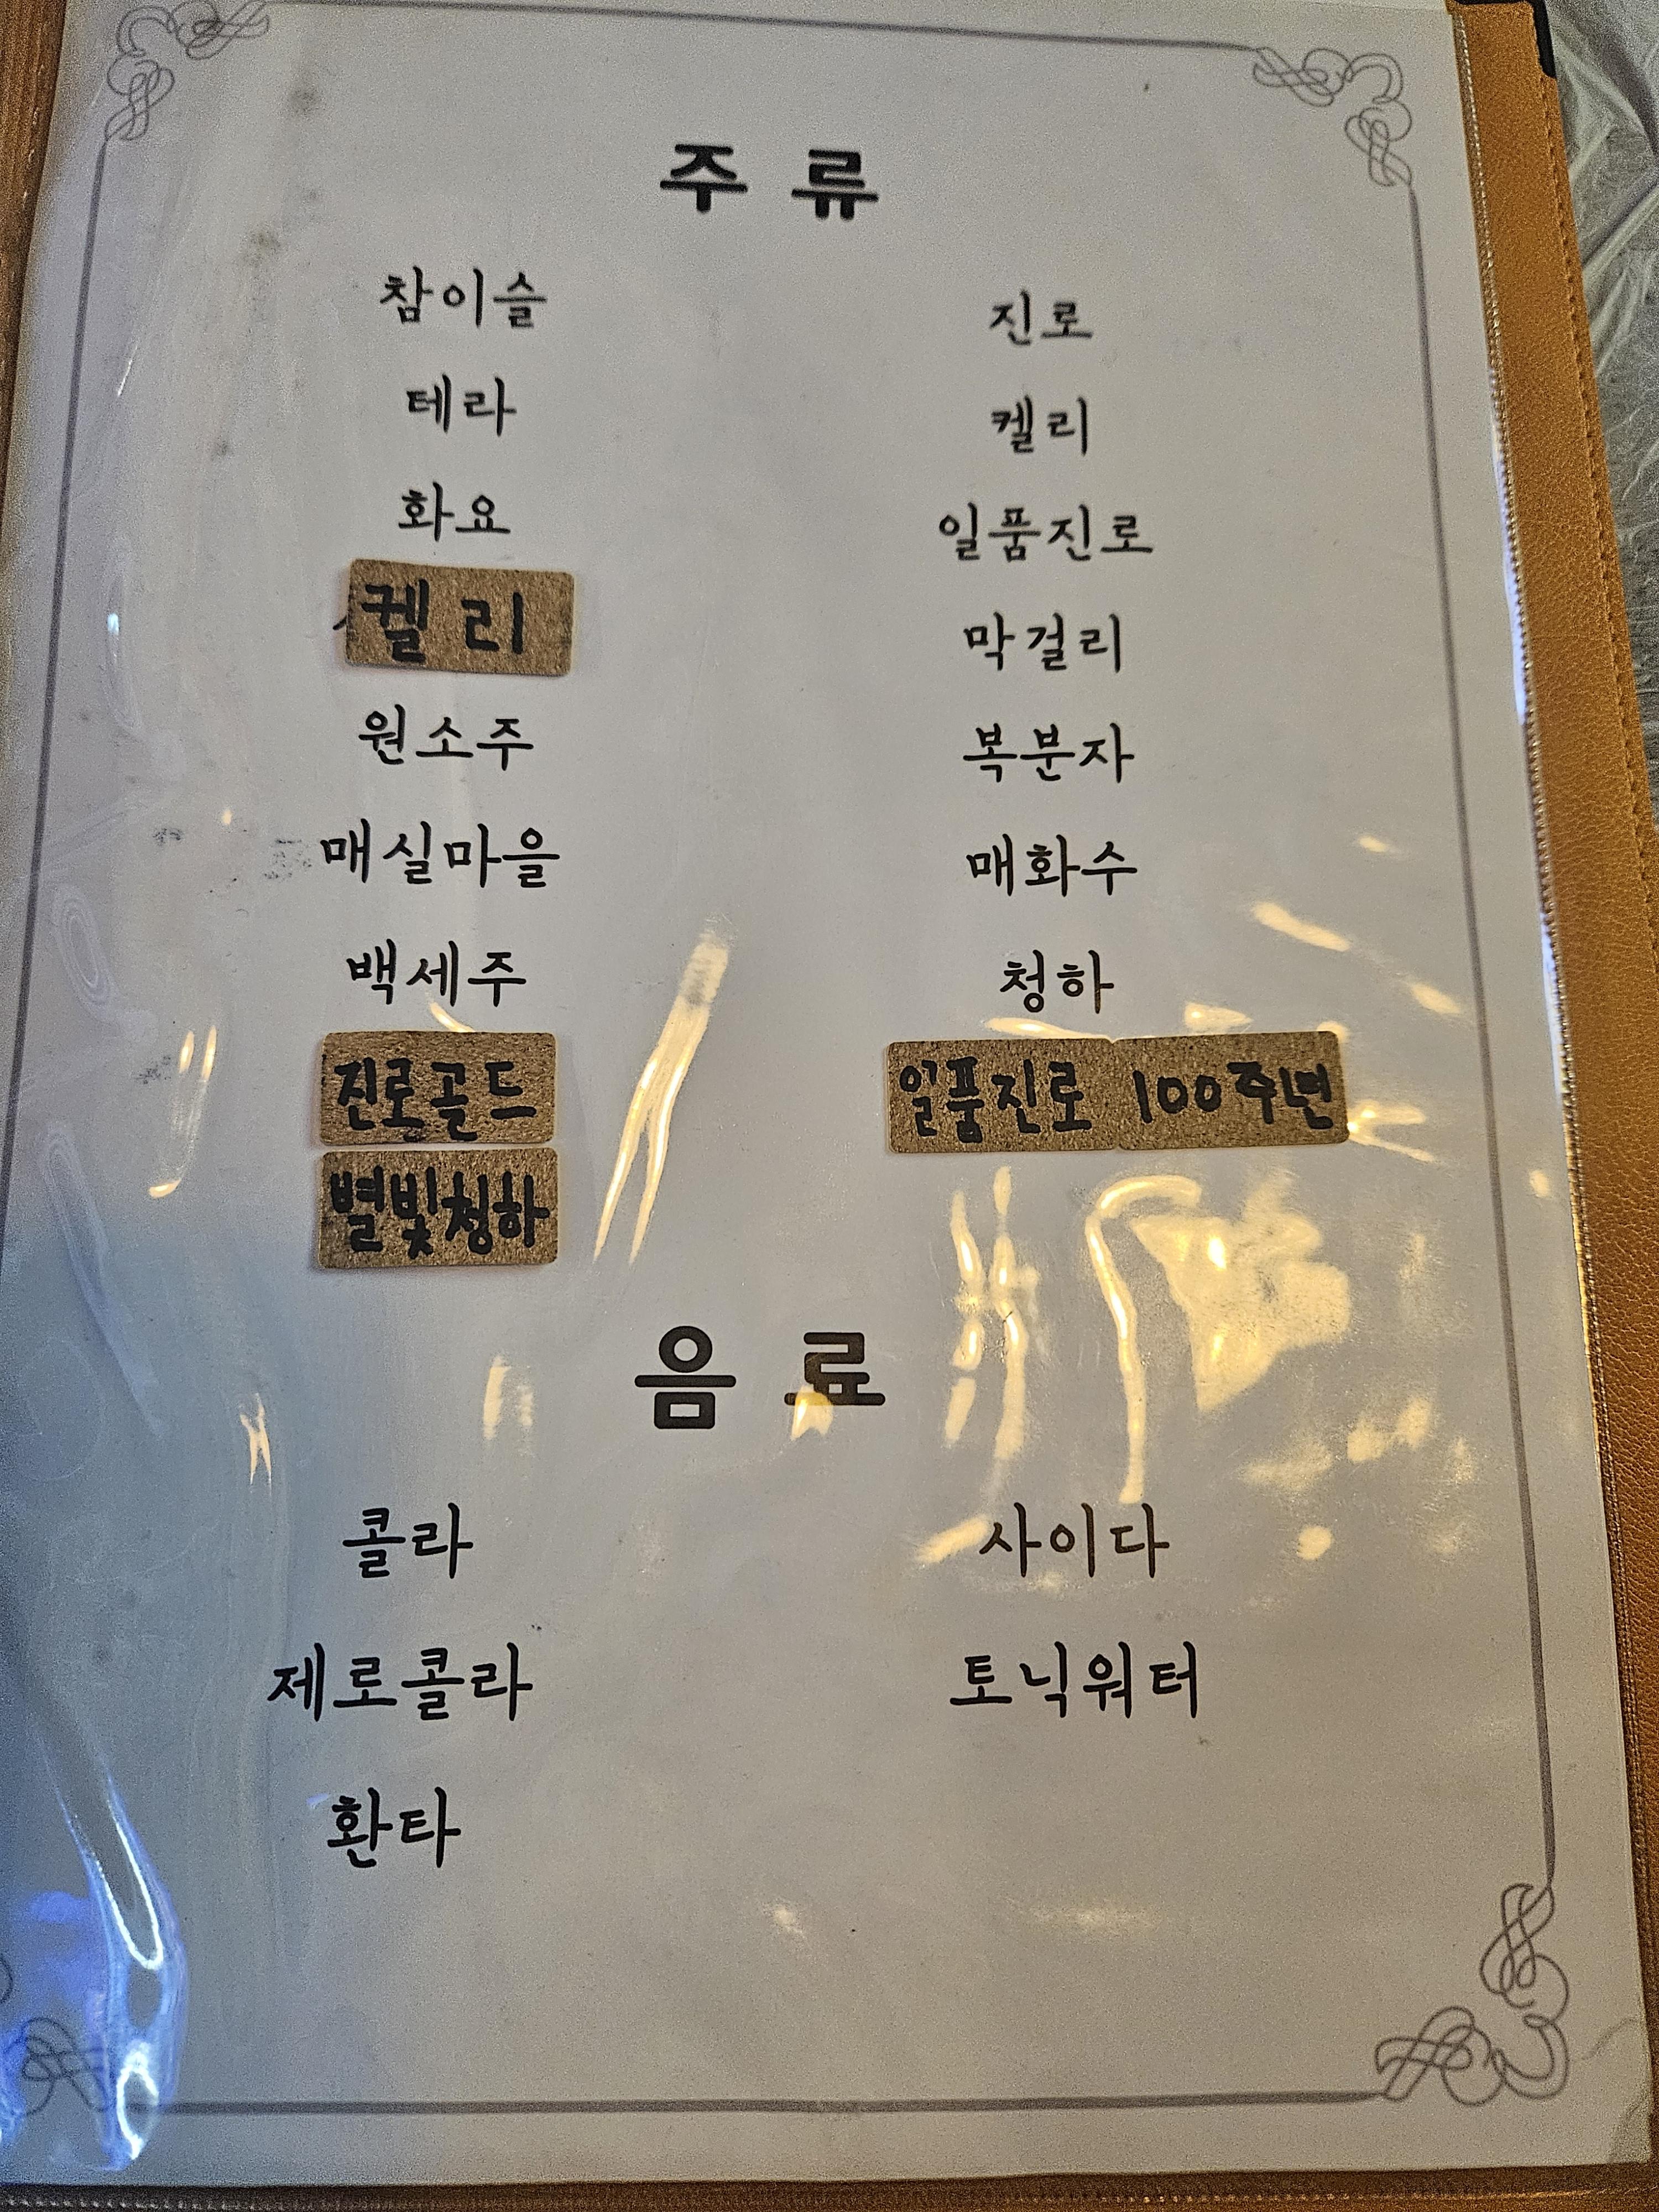 주 류
참이슬 진로
테라 켈리
화요 일품진로
켈리 막걸리
원소주 복분자
매실마을 매화수
백세주 청하
진로골드 일품진로 100주년
별빛청하
음 료
콜라 사이다
제로콜라 토닉워터
환타